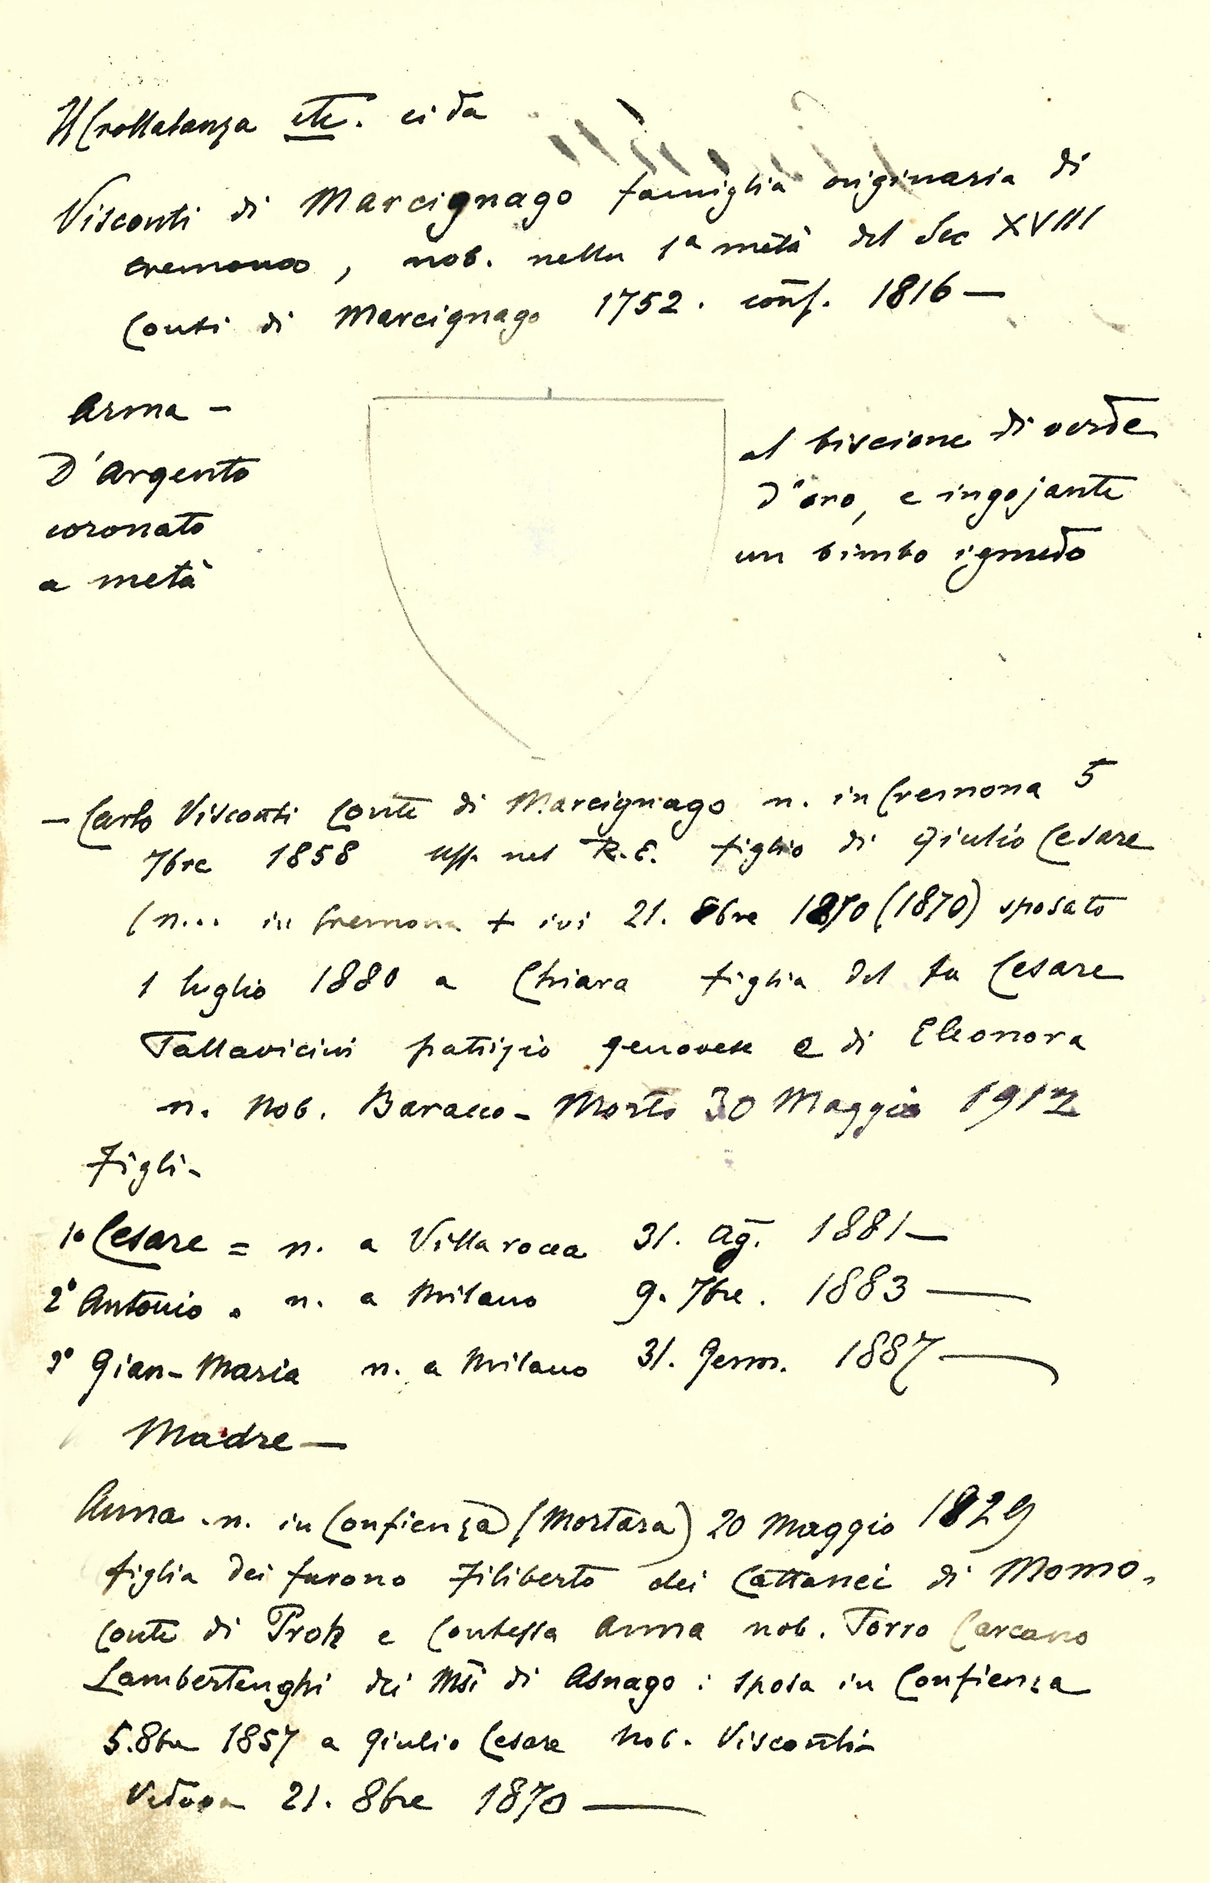 Il Crollalanza etc. ci dà
Visconti di Marcignago famiglia originaria di
cremona, nob. nella 1ª metà del Sec XVIII
Conti di Marcignago 1752. conf. 1816 —
Arma —
D'Argento al biscione di verde
coronato d'oro, e ingojante
a metà un bimbo ignudo
— Carlo Visconti Conte di Marcignago n. in Cremona 5
7bre 1858 uff. nel R.E. figlio di Giulio Cesare
(n... in Cremona + ivi 21. 8bre 1870 (1870) sposato
1 luglio 1880 a Chiara figlia del fu Cesare
Pallavicini patrizio genovese e di Eleonora
n. Nob. Baracco — Morto 30 Maggio 1912
Figli —
1º Cesare = n. a Villarocca 31. Ag. 1881 —
2º Antonio. n. a Milano 9. 7bre. 1883 —
3º Gian-Maria n. a Milano 31. Genn. 1887 —
Madre —
Anna. n. in Confienza (Mortara) 20 Maggio 1829
figlia dei furono Filiberto dei Cattanei di Momo.
Conte di Proh e Contessa Anna nob. Torro Carcano
Lambertenghi dei Msi di Asnago: sposa in Confienza
5. 8bre 1857 a Giulio Cesare Nob. Visconti —
Vedova 21. 8bre 1870 —